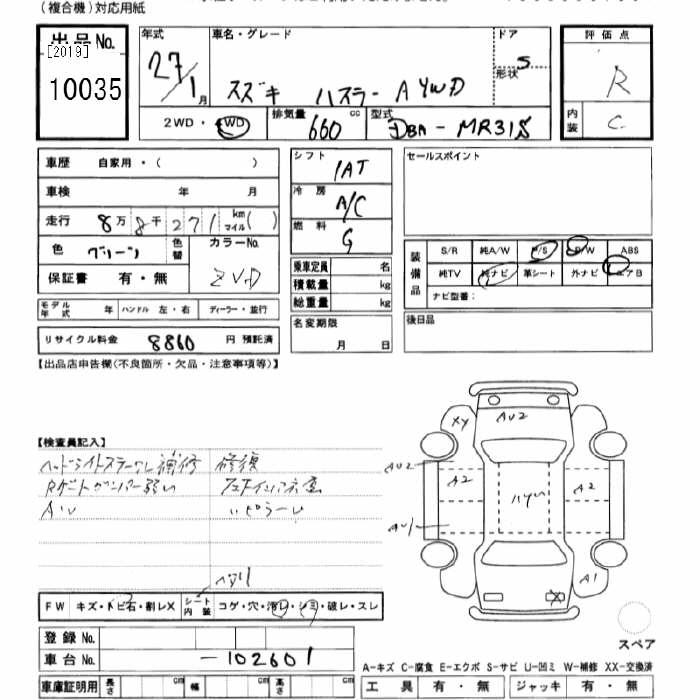 (複合機)対応用紙
出品No.
[2019]
10035
年式
27/1月
車名・グレード
スズキ ハスラー A 4WD
ドア
形状
5
2WD・4WD
排気量
660 cc
型式
DBA-MR31S
評価点
R
内装
C
車歴 自家用・( )
車検 年 月
走行 8万8千271 km マイル( )
色 グリーン 色替
カラーNo.
ZVD
保証書 有・無
モデル年式 年 ハンドル 左・右 ディーラー・並行
リサイクル料金 8860 円 預託済
シフト
IAT
冷房
A/C
燃料
G
乗車定員 名
積載量 kg
総重量 kg
名変期限
月 日
セールスポイント
装備品
S/R 純A/W P/S P/W ABS
純TV 純ナビ 革シート 外ナビ エアB
ナビ型番:
後日品
【出品店申告欄(不良箇所・欠品・注意事項等)】
【検査員記入】
ヘッドライトステーワレ補修 修復
Rゲートダンパー弱い
XY
AU2
AU2
A2
A2
AU1
A1
X
ヘタリ
FW キズ・トビ石・割レX
シート内装 コゲ・穴・汚レ・シミ・破レ・スレ
登録No.
車台No. -102601
車庫証明用 長さ cm 幅 cm 高さ cm
スペア
A-キズ C-腐食 E-エクボ S-サビ U-凹ミ W-補修 XX-交換済
工具 有・無 ジャッキ 有・無